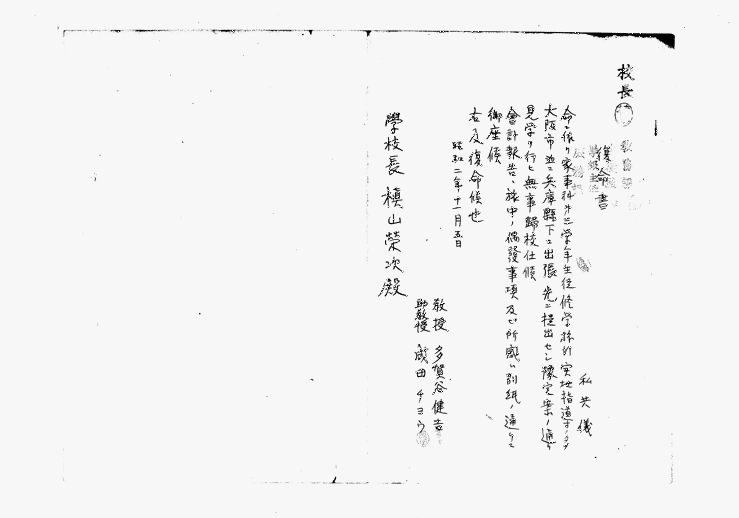 校長
復命書
私共儀
命ニ依リ家事科第三学年生徒修学旅行実地指導ノタメ
大阪市並ニ兵庫縣下ニ出張先ニ提出セシ豫定案ノ通リ
見学ヲ行ヒ無事歸校仕候
會計報告、旅中ノ偶發事項及ビ所感ハ別紙ノ通リニ
御座候
右及復命候也
昭和二年十一月五日
教授 多賀谷健吉
助教授 成田チヨウ
學校長 槇山榮次殿